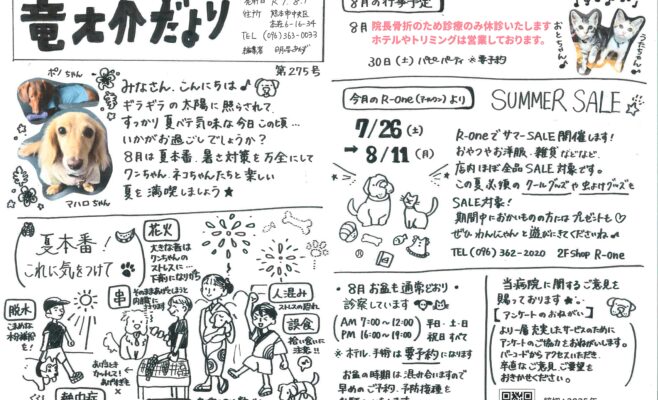 竜之介だより
発行日 R.7.8.1
住所 熊本市中央区
本荘6-16-34
TEL (096)363-0033
第275号
ポノちゃん
マハロちゃん
みなさん、こんにちは♪
ギラギラの太陽に照らされて、
すっかり夏バテ気味な今日この頃…
いかがお過ごしでしょうか?
8月は夏本番、暑さ対策を万全にして
ワンちゃん、ネコちゃんたちと楽しい
夏を満喫しましょう★
8月の行事予定
8月 院長骨折のため診療のみ休診いたします
ホテルやトリミングは営業しております。
30日(土) パピーパーティ ※要予約
おとちゃん♪
うたちゃん♪
今月のR-One(アールワン)より
SUMMER SALE
7/26(土)
→ 8/11(月)
R-OneでサマーSALE開催します!
おやつやお洋服、雑貨などなど、
店内ほぼ全品SALE対象です。
この夏、必須のクールグッズや虫よけグッズも
SALE対象!
期間中におかいものの方にはプレゼントも♡
ぜひわんにゃんと遊びにきてくださいね♪
TEL (096) 362-2020 2F Shop R-One
夏本番!
これに気をつけて
花火
大きな音は
ワンちゃんの
ストレスに…
下痢になりがち
串
そのままあげてしまうと
内臓に
ささります
人混み
ストレスの恐れ
誤食
拾い食いに
注意!!
脱水
こまめな
水分補給を!
あげる時は
カットして!
あげすぎも
熱中症
8月お盆も通常どおり
診察しています
AM 7:00〜12:00
PM 16:00〜19:00
平日・土・日
祝日すべて
※ホテル、手術は要予約になります
お盆の時期は混み合いますので
早めのご予約、予防接種を
お願いいたします
当病院に関するご意見を
賜っております★
【アンケートのおねがい】
より一層充実したサービスのために
アンケートのご協力をおねがいします。
バーコードからアクセスいただき、
率直なご意見、ご要望を
おきかせください。